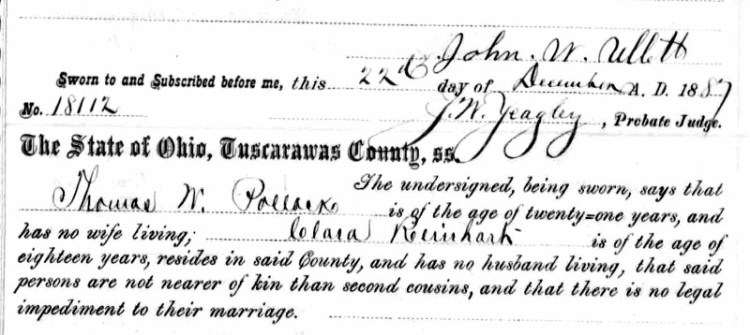 John. W. Ullett
Sworn to and Subscribed before me, this 22d day of December A. D. 1887
No. 18112 J. W. Yeagley, Probate Judge.
The State of Ohio, Tuscarawas County, ss.
The undersigned, being sworn, says that
Thomas W. Pollack is of the age of twenty-one years, and
has no wife living; Clara Reinhart is of the age of
eighteen years, resides in said County, and has no husband living, that said
persons are not nearer of kin than second cousins, and that there is no legal
impediment to their marriage.